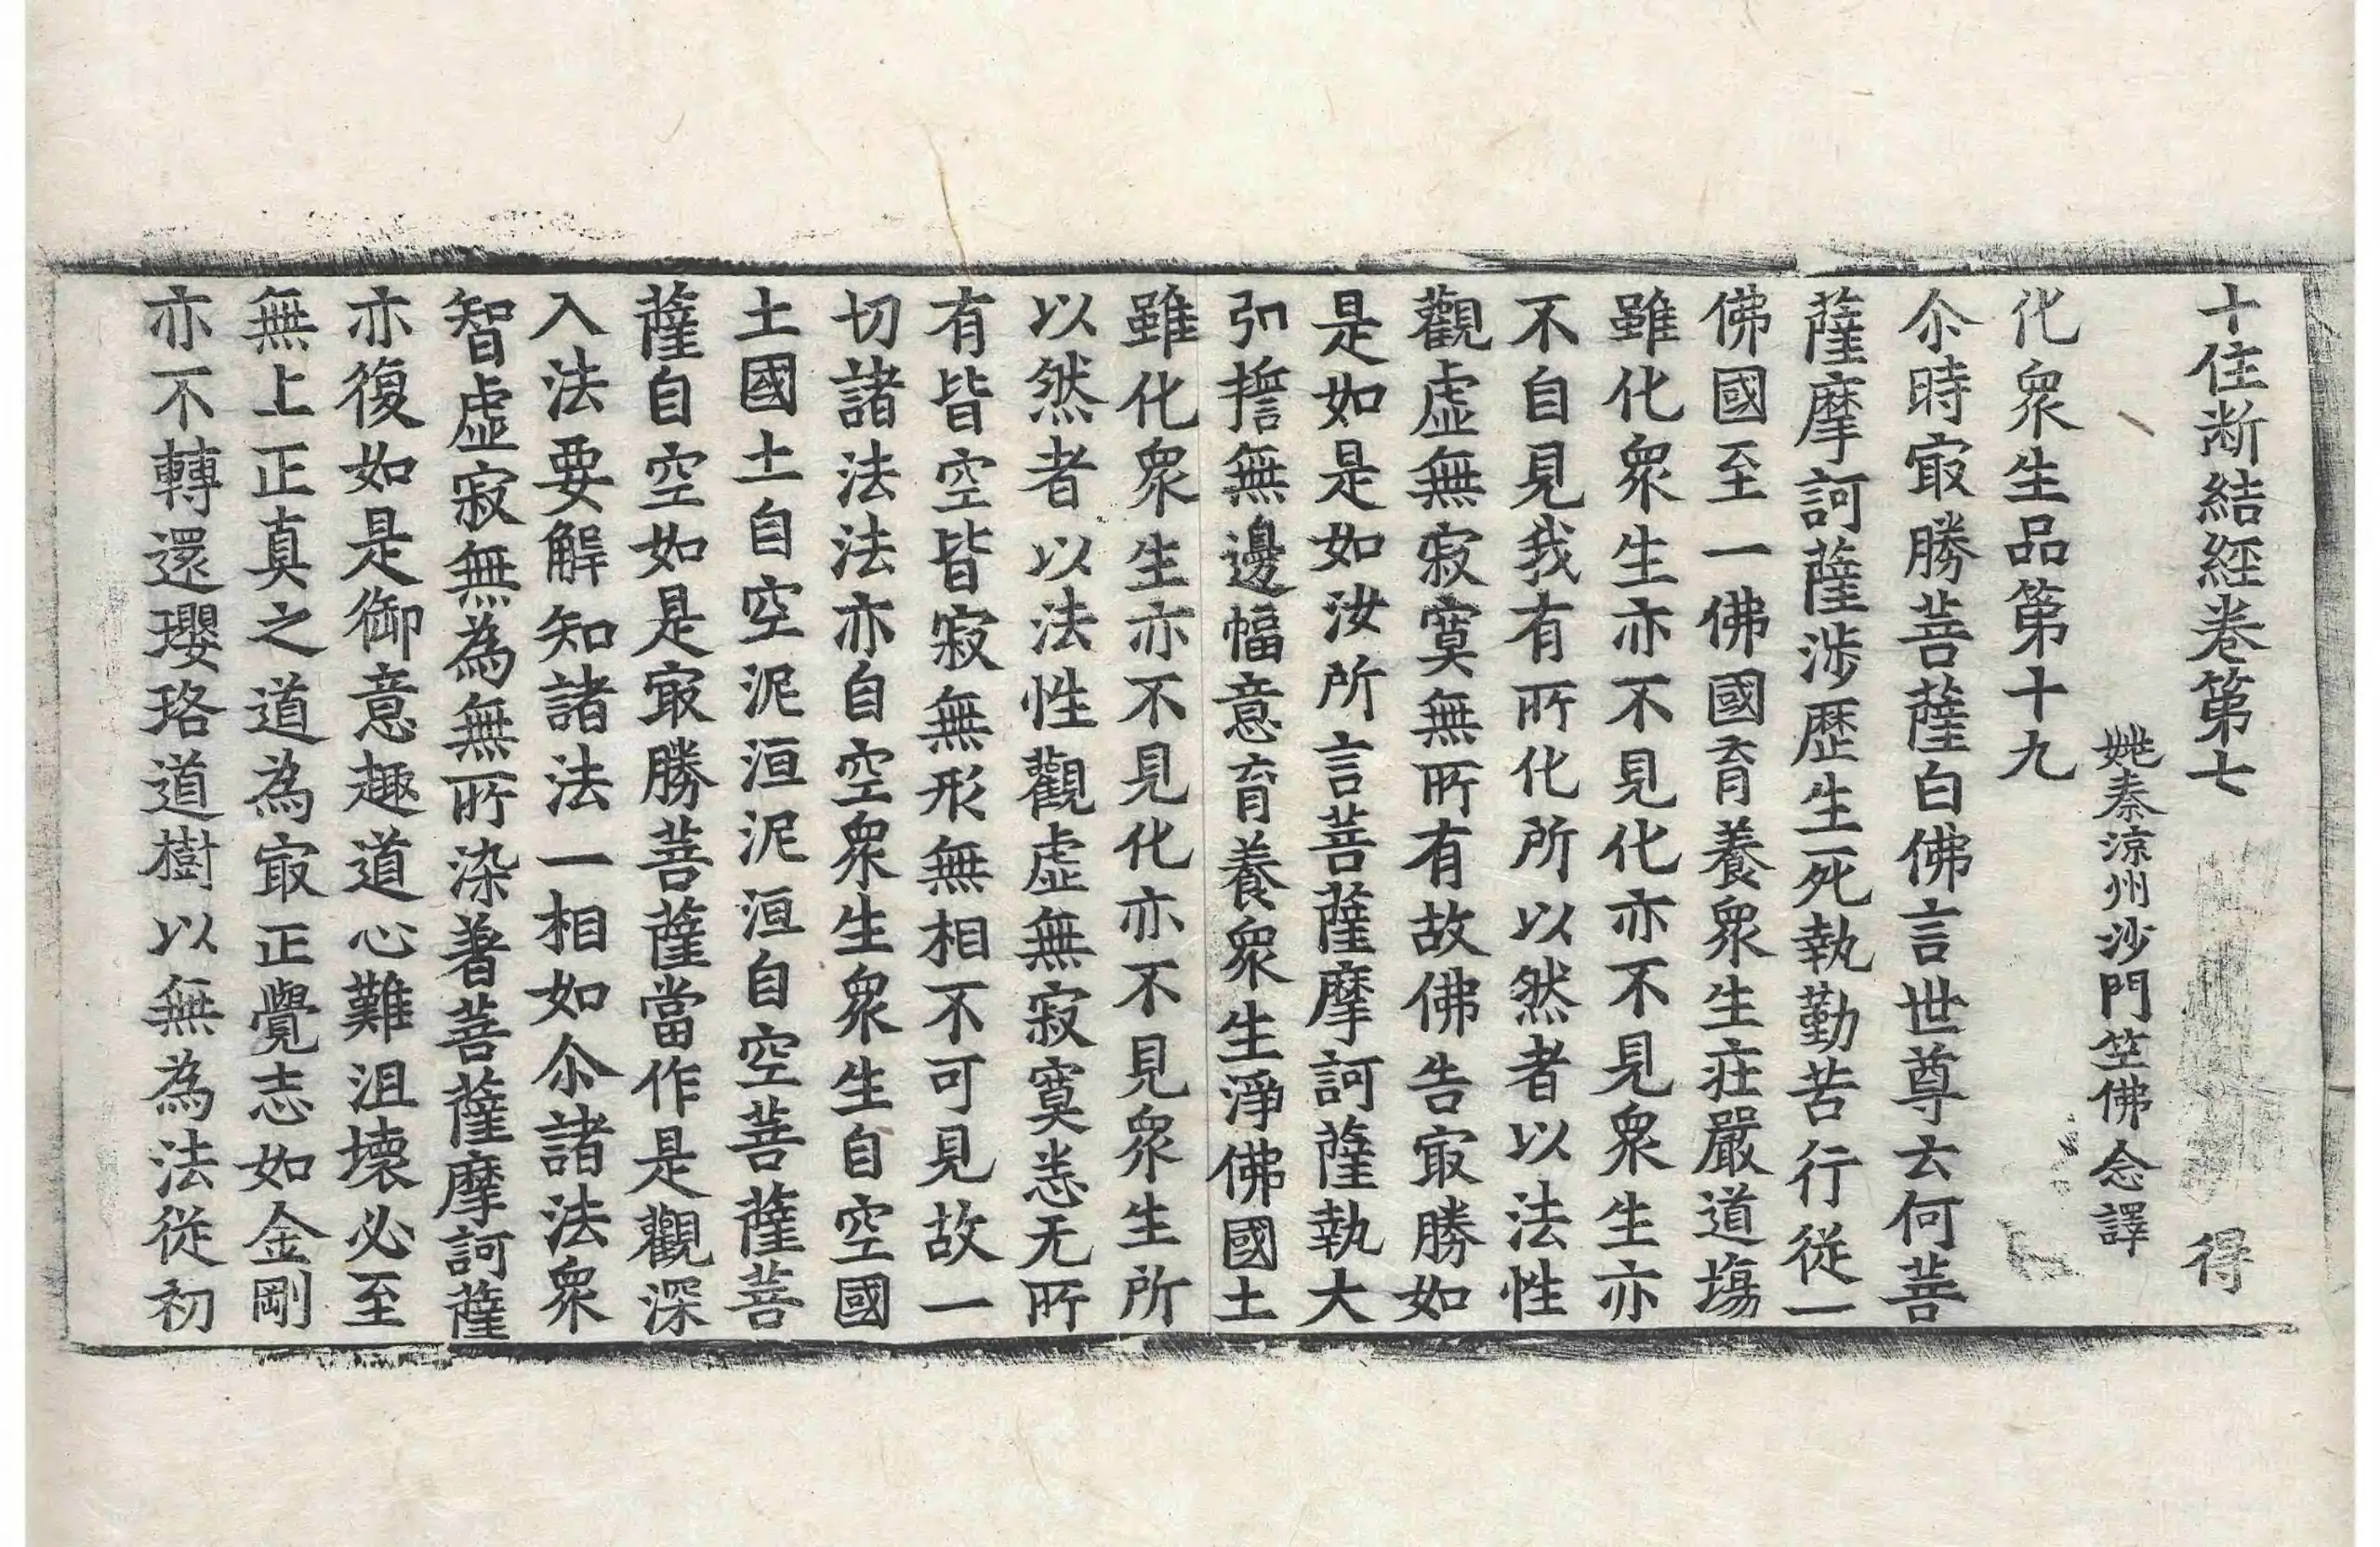 十住断結經卷第七 得
姚秦涼州沙門竺佛念譯
化衆生品第十九
尒時㝡勝菩薩白佛言世尊云何菩
薩摩訶薩涉歷生死執勤苦行從一
佛國至一佛國育養衆生莊嚴道塲
雖化衆生亦不見化亦不見衆生亦
不自見我有所化所以然者以法性
觀虛無寂寞無所有故佛告㝡勝如
是如是如汝所言菩薩摩訶薩執大
弘誓無邊幅意育養衆生淨佛國土
雖化衆生亦不見化亦不見衆生所
以然者以法性觀虛無寂寞悉无所
有皆空皆寂無形無相不可見故一
切諸法法亦自空衆生衆生自空國
土國土自空泥洹泥洹自空菩薩菩
薩自空如是㝡勝菩薩當作是觀深
入法要解知諸法一相如尒諸法衆
智虛寂無為無所染著菩薩摩訶薩
亦復如是御意趣道心難沮壞必至
無上正真之道為㝡正覺志如金剛
亦不轉還瓔珞道樹以無為法從初